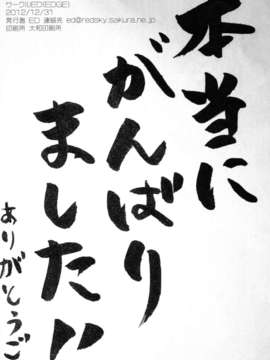 サークル(ED(EDGE)
2012/12/31
発行者 ED 連絡先 ed@redsky.sakura.ne.jp
印刷所 大和印刷所
本当に
がんばり
ました!!
ありがとうご